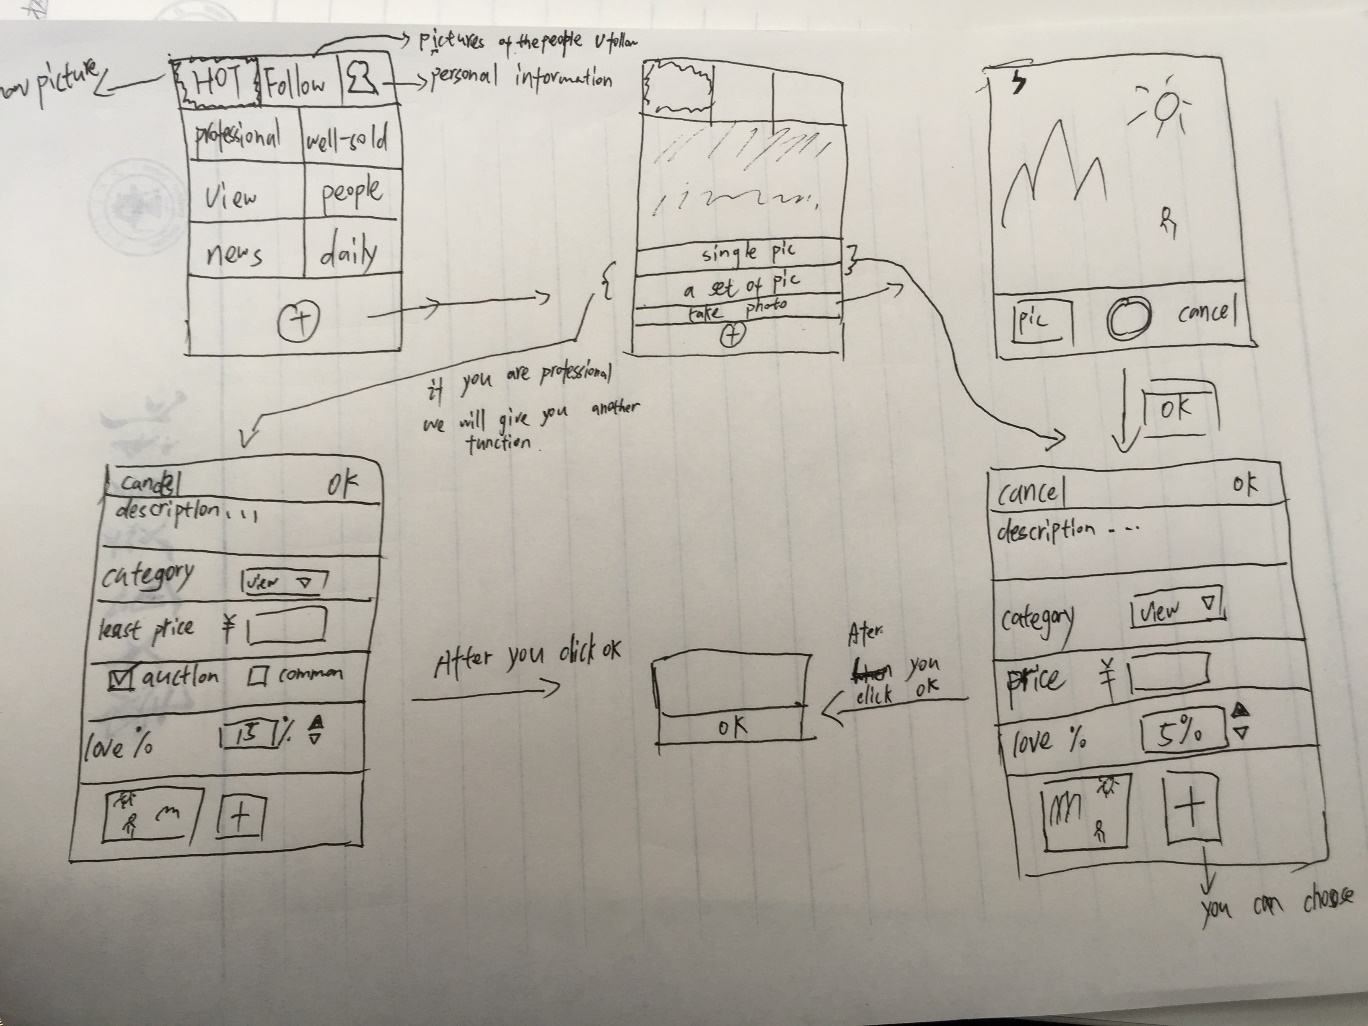 pictures of the people U follow
picture
HOT
Follow
personal information
professional
well-sold
view
people
news
daily
+
single pic
a set of pic
take photo
+
pic
cancel
OK
if you are professional
we will give you another
function
cancel
OK
description...
category
view
least price ¥
auction
common
love %
15%
+
After you click OK
OK
Ater
you
click OK
cancel
OK
description ...
category
view
price ¥
love %
5%
+
you can choose